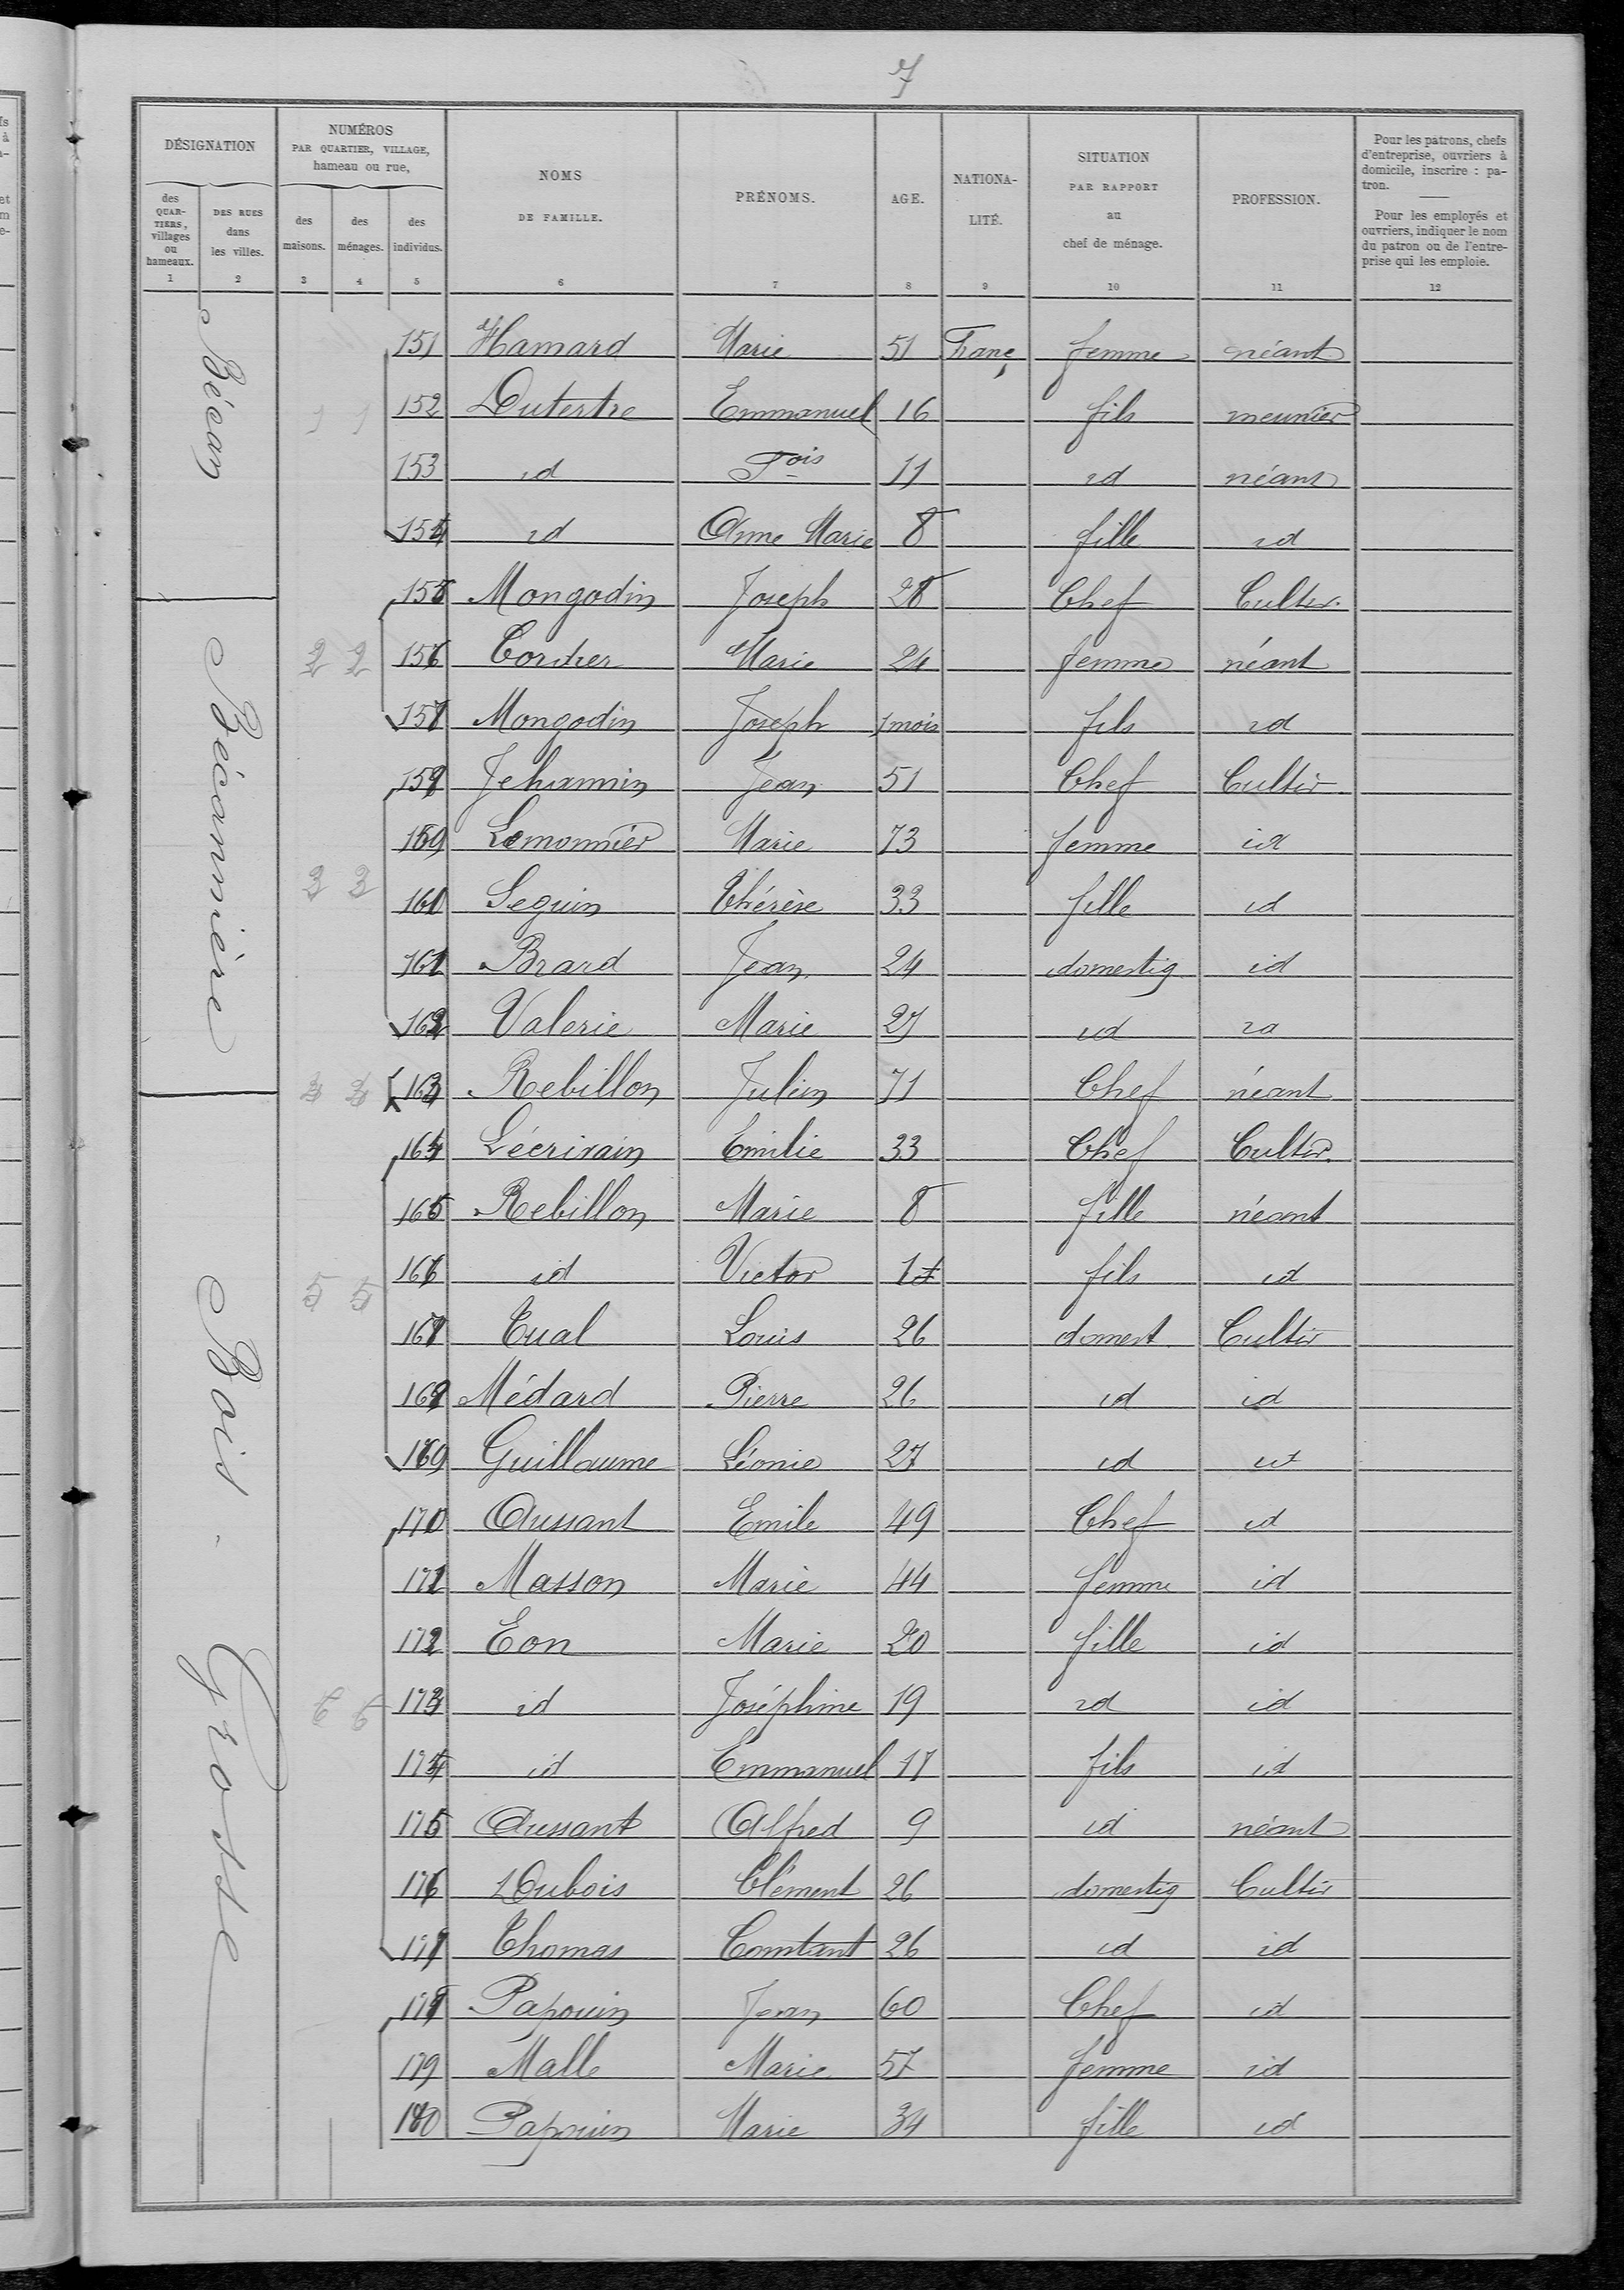 7
DÉSIGNATION
NUMÉROS
PAR QUARTIER, VILLAGE,
hameau ou rue,
des
QUAR-
TIERS,
villages
ou
hameaux.
DES RUES
dans
les villes.
des
maisons.
des
ménages.
des
individus.
NOMS
DE FAMILLE.
PRÉNOMS.
AGE.
NATIONA-
LITÉ.
SITUATION
PAR RAPPORT
au
chef de ménage.
PROFESSION.
Pour les patrons, chefs
d'entreprise, ouvriers à
domicile, inscrire : pa-
tron.
Pour les employés et
ouvriers, indiquer le nom
du patron ou de l'entre-
prise qui les emploie.
1 2 3 4 5 6 7 8 9 10 11 12
Bécan
151 Hamard Marie 51 Franç femme néant
1 1 152 Dutertre Emmanuel 16 fils meunier
153 id Fois 11 id néant
154 id Anne Marie 8 fille id
Bécannière
155 Mongodin Joseph 28 Chef Cultiv.
2 2 156 Cordier Marie 24 femme néant
157 Mongodin Joseph 1 mois fils id
158 Jehannin Jean 51 Chef Cultiv
159 Lemonnier Marie 73 femme id
3 3 160 Seguin Thérèse 33 fille id
161 Brard Jean 24 domestiq id
162 Valerie Marie 27 id id
4 4 163 Rebillon Julien 71 Chef néant
Bois Grosse
164 Lécrivain Emilie 33 Chef Cultiv.
165 Rebillon Marie 8 fille néant
5 5 166 id Victor fils id
167 Tual Louis 26 domest. Cultiv
168 Médard Pierre 26 id id
169 Guillaume Léonie 27 id id
170 Aussant Emile 49 Chef id
171 Masson Marie 44 femme id
172 Eon Marie 20 fille id
6 6 173 id Joséphine 19 id id
174 id Emmanuel 17 fils id
175 Aussant Alfred 9 id néant
176 Dubois Clément 26 domestiq Cultiv
177 Thomas Constant 26 id id
178 Papouin Jean 60 Chef id
179 Malle Marie 57 femme id
180 Papouin Marie 34 fille id